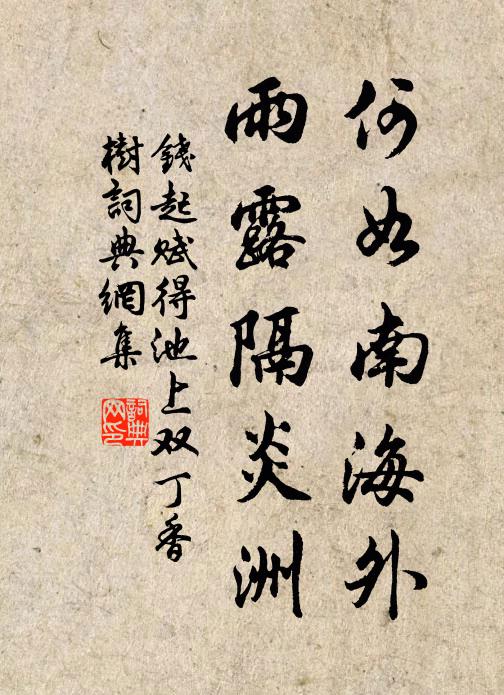 何如南海外
雨露隔炎洲
錢起赋得池上双丁香
樹詞典網集
詞典网印